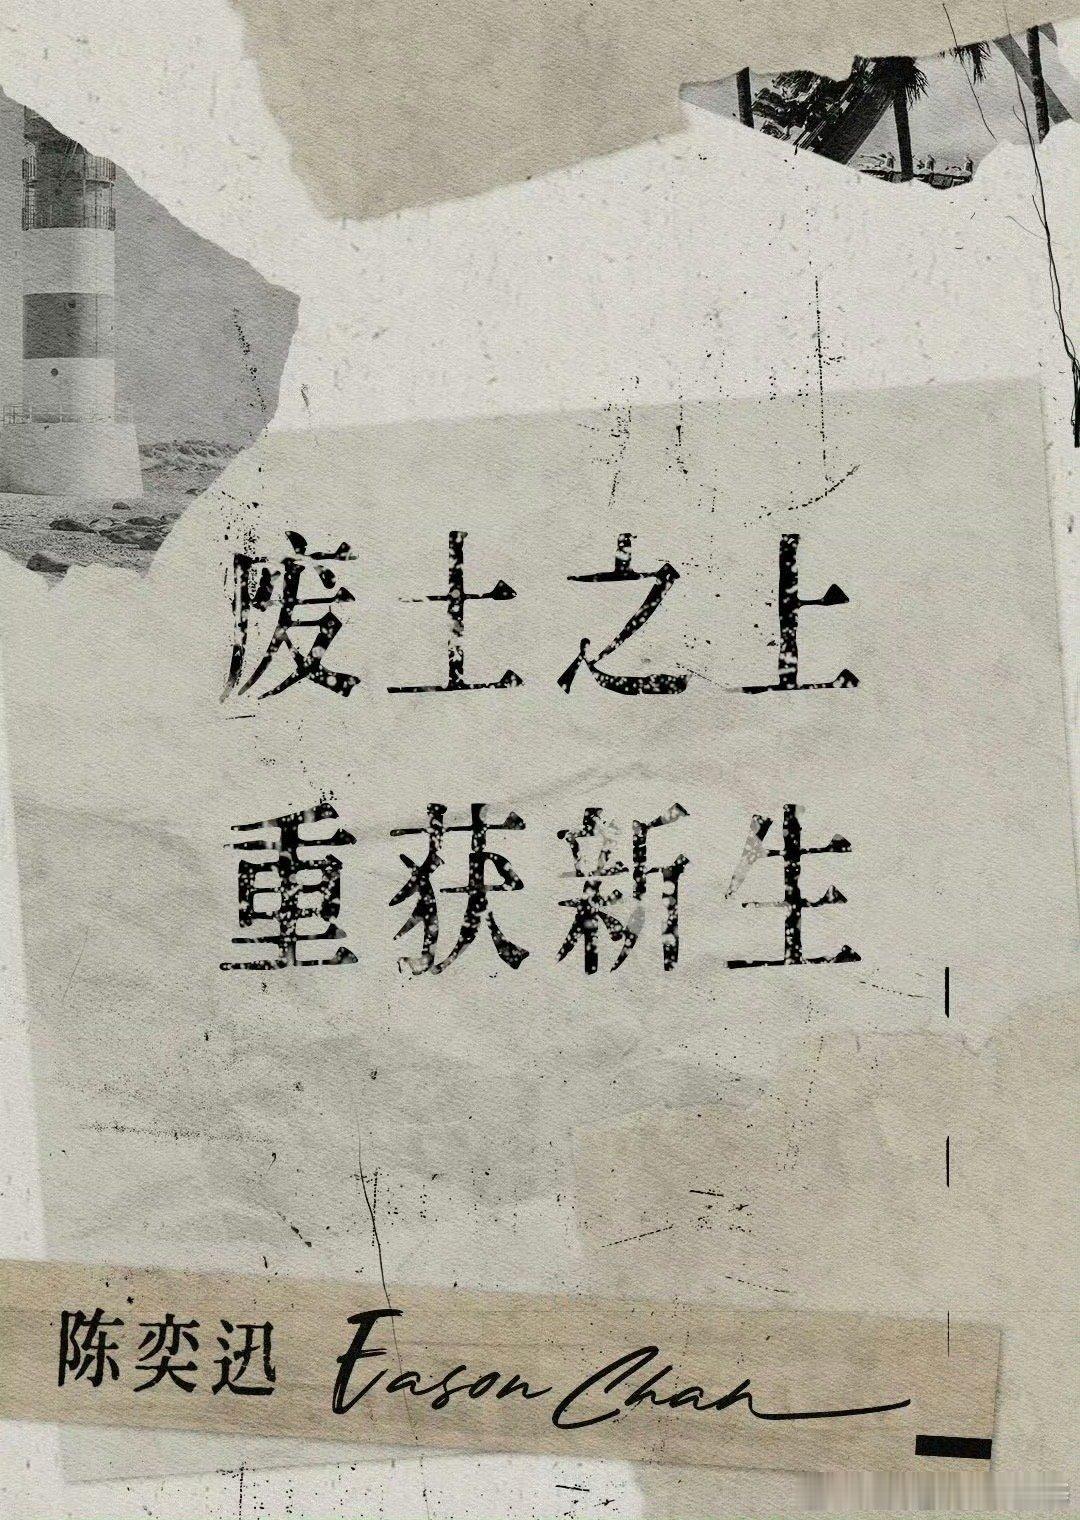 废土之上
重获新生
陈奕迅 Eason Chan